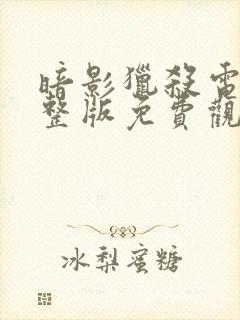 暗影獵殺電
整版免費觀
冰梨蜜糖